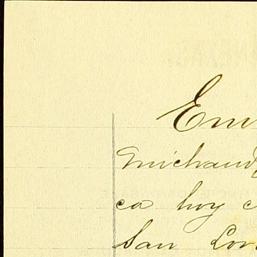 Em
Michaud
ca hoy c
San Lor